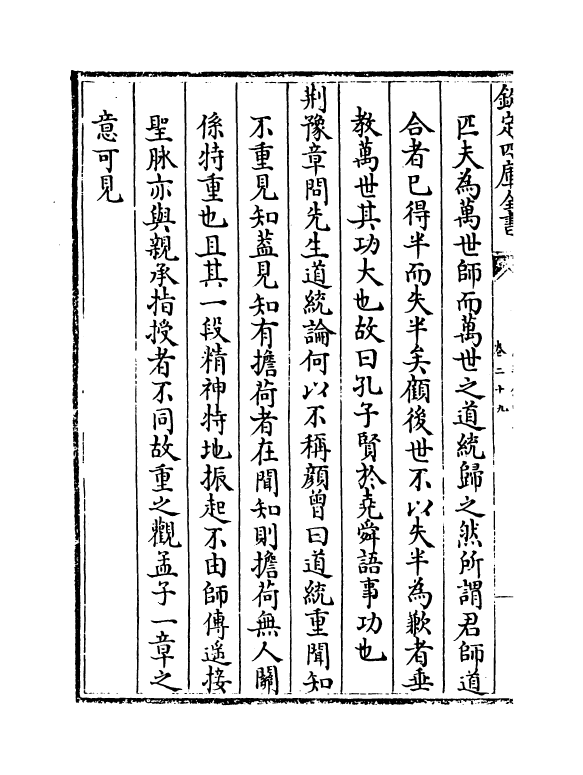 欽定四庫全書
卷二十九
匹夫為萬世師而萬世之道統歸之然所謂君師道
合者已得半而失半矣顧後世不以失半為歉者垂
教萬世其功大也故曰孔子賢於堯舜語事功也
荆豫章問先生道統論何以不稱顔曾曰道統重聞知
不重見知葢見知有擔荷者在聞知則擔荷無人關
係特重也且其一段精神特地振起不由師傳遥接
聖脉亦與親承指授者不同故重之觀孟子一章之
意可見